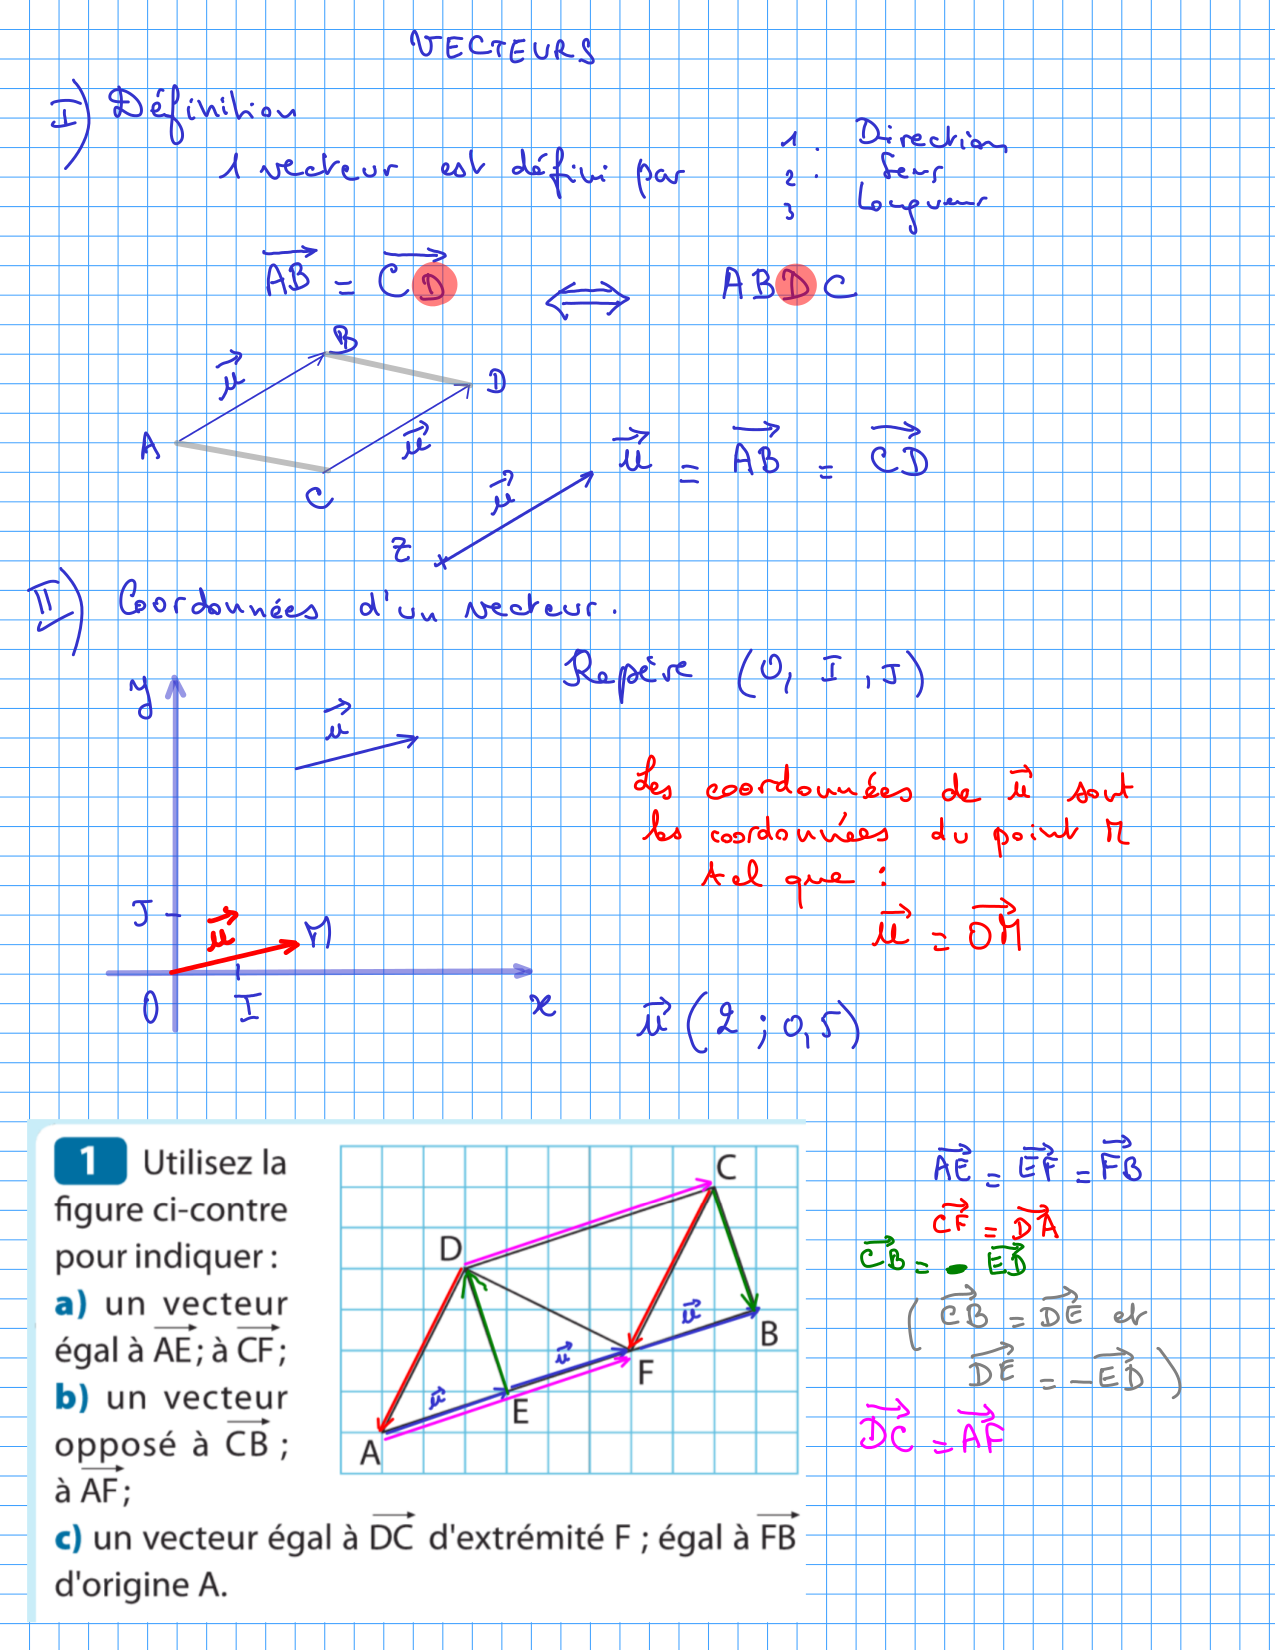 VECTEURS
I) Définition
1 vecteur est défini par
1. Direction
2. Sens
3 Longueur
AB = CD ⟺ ABDC
B
u
D
A
u
C
u = AB = CD
u
Z
II) Coordonnées d'un vecteur.
Repère (O, I, J)
y
u
Les coordonnées de u sont
les coordonnées du point M
tel que :
u = OM
J
u
M
O
I
x
u (2 ; 0,5)
1 Utilisez la
figure ci-contre
pour indiquer :
a) un vecteur
égal à AE ; à CF ;
b) un vecteur
opposé à CB ;
à AF ;
c) un vecteur égal à DC d'extrémité F ; égal à FB
d'origine A.
C
D
u
B
u
F
u
E
A
AE = EF = FB
CF = DA
CB = - ED
( CB = DE et
DE = -ED )
DC = AF